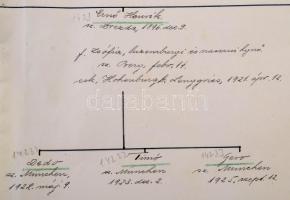 Ernő Henrik
sz. Drezda, 1896. dec. 9.
f. Zsófia, luxemburgi és nassaui hgnő
sz. Berg, febr. 14.
esk. Hohenburgh, Lenggries, 1921. ápr. 12.
Dedo
sz. München,
1922. máj. 9.
Timó
sz. München
1923. dec. 2.
Gero
sz. München
1925. szept. 12.
darabanth